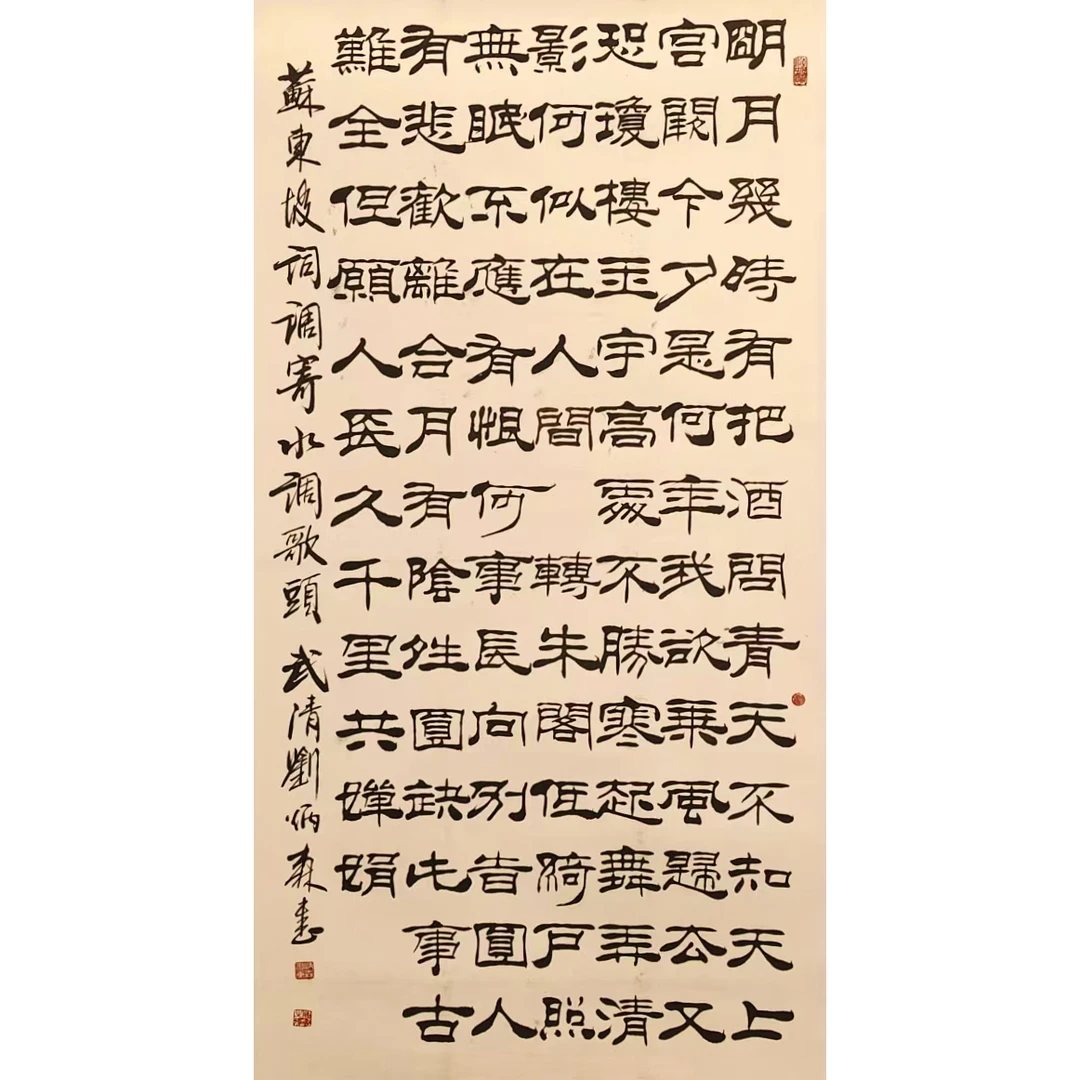 朙月幾時有把酒問青天不知天上
宮闕今夕是何年我欲乘風歸去又
恐瓊樓玉宇高處不勝寒起舞弄清
影何似在人間 轉朱閣低綺戶照
無眠不應有恨何事長向別旹圓人
有悲歡離合月有陰夝圓缺此事古
難全但願人長久千里共嬋娟
蘇東坡词调寄水调歌頭 武清劉炳森書